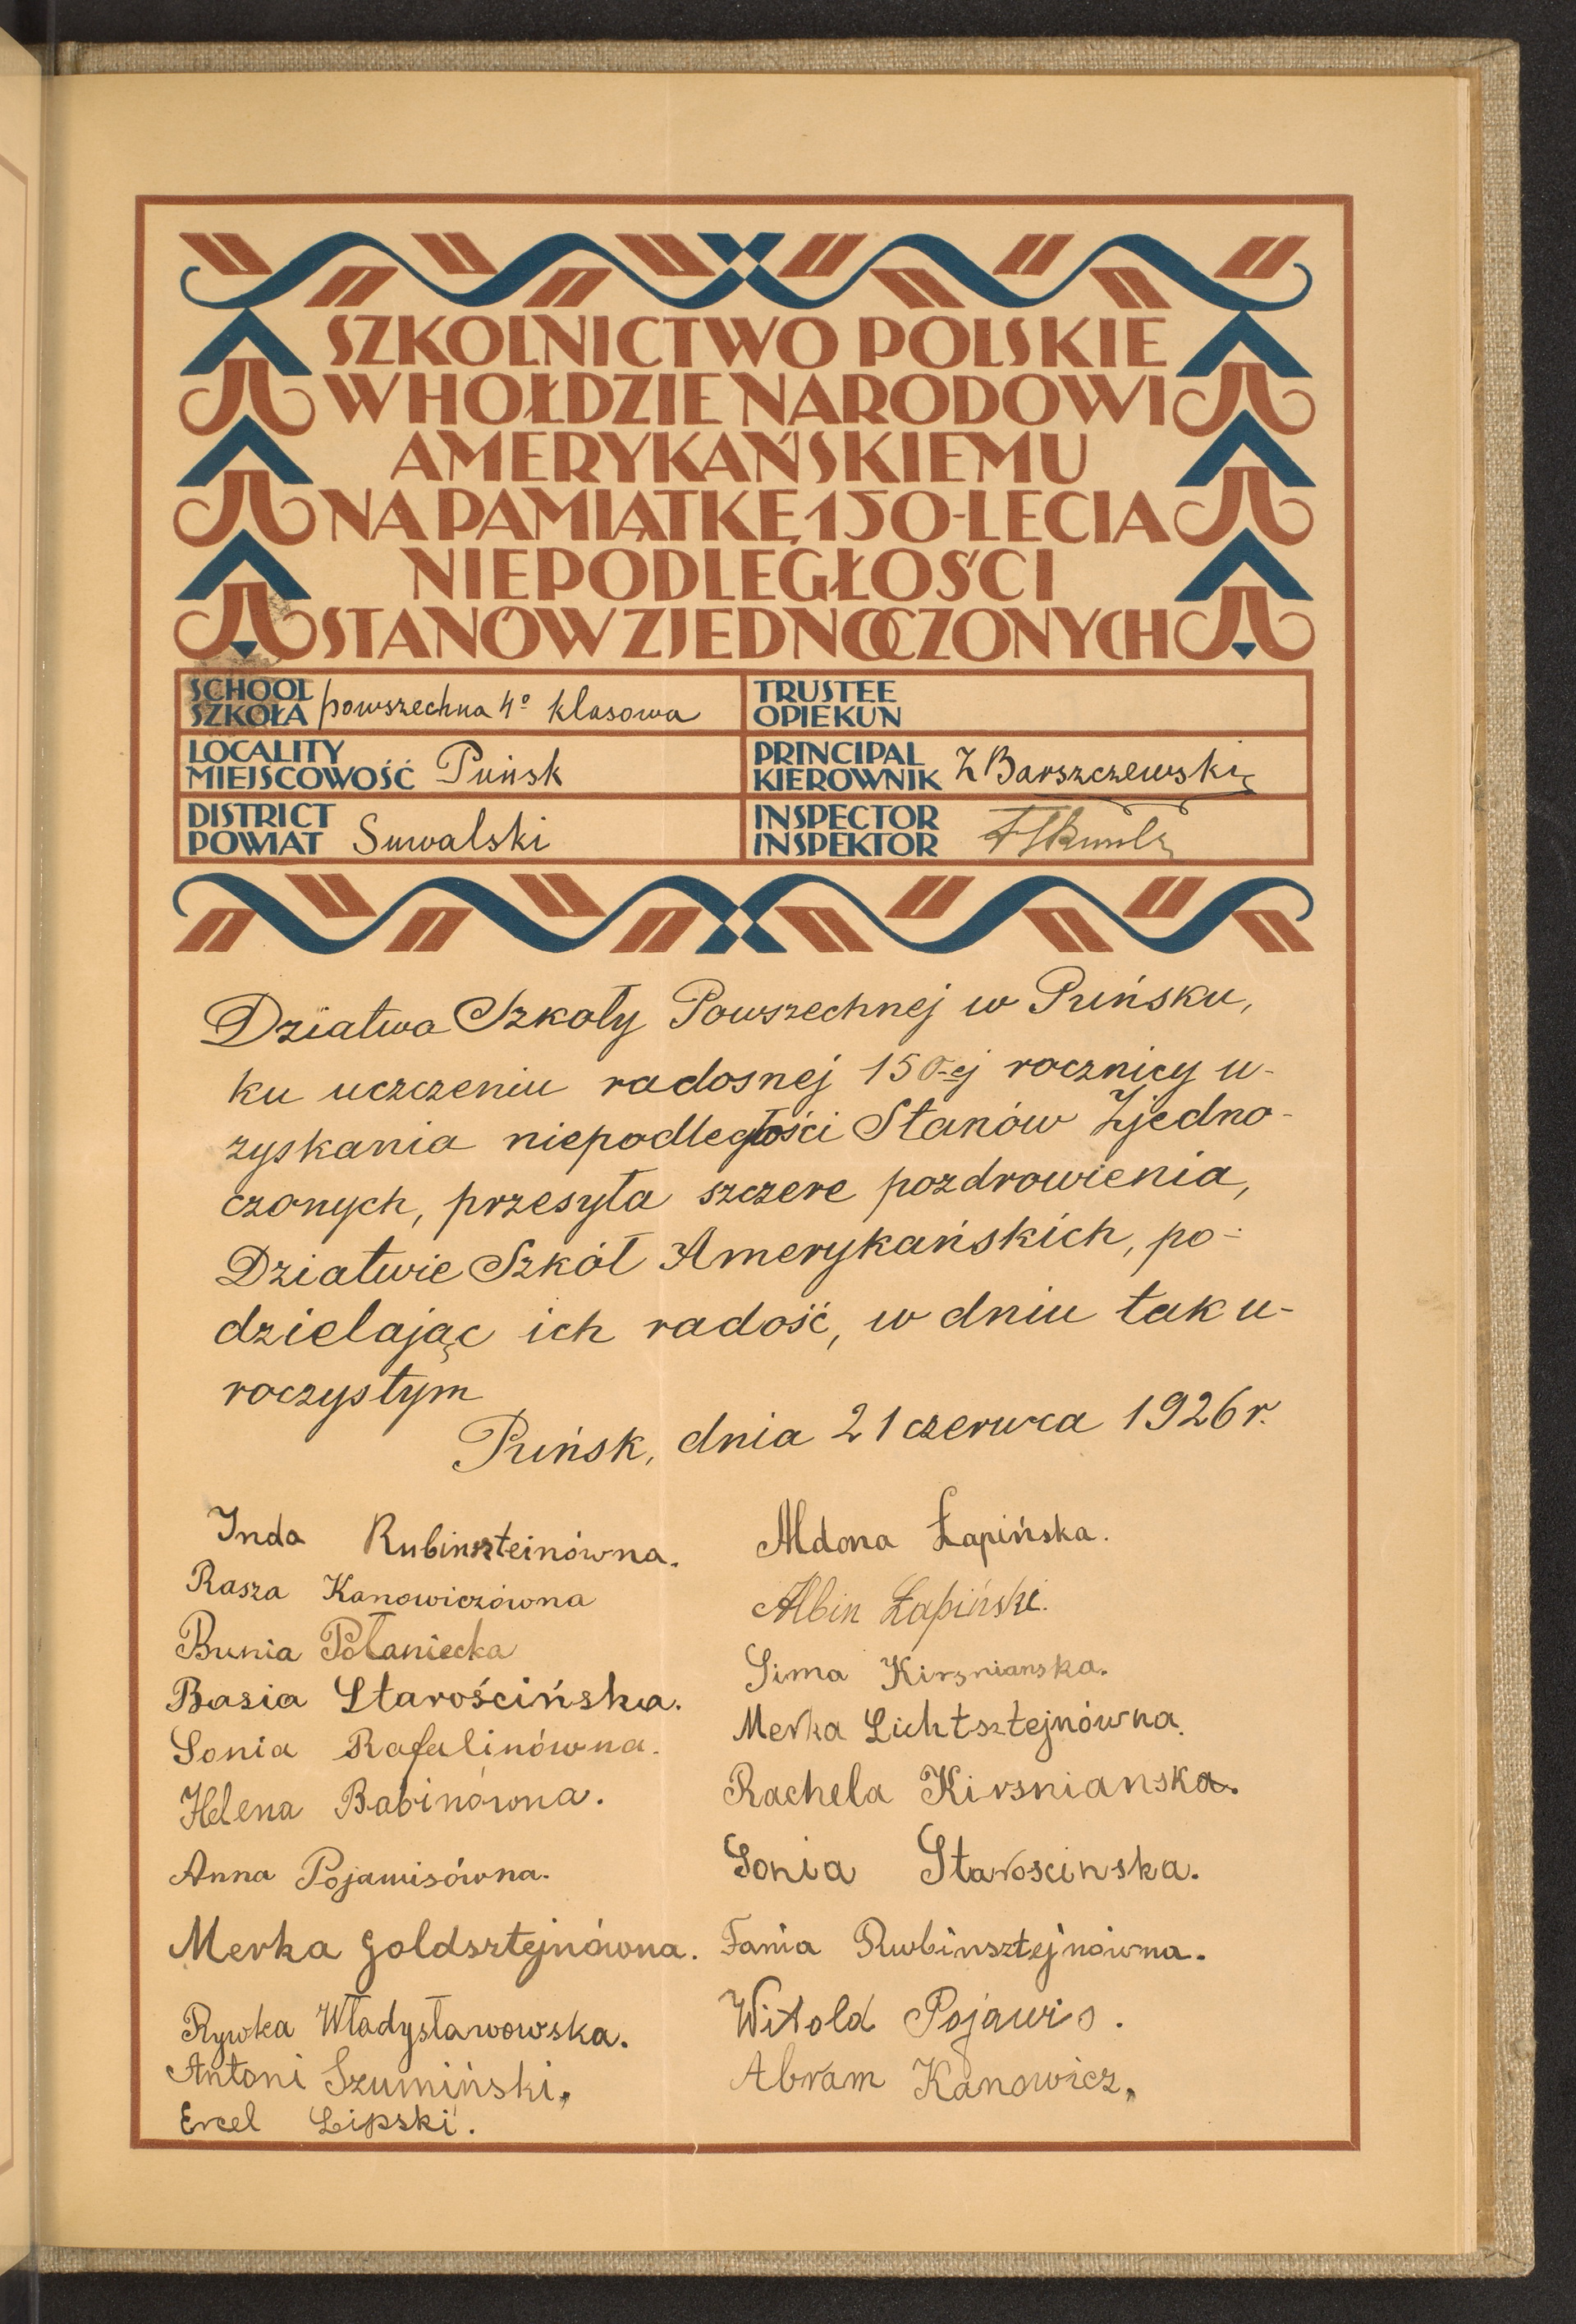 SZKOLNICTWO POLSKIE
W HOŁDZIE NARODOWI
AMERYKAŃSKIEMU
NA PAMIĄTKĘ 150-LECIA
NIEPODLEGŁOŚCI
STANÓW ZJEDNOCZONYCH
SCHOOL
SZKOŁA powszechna 4º klasowa
TRUSTEE
OPIEKUN
LOCALITY
MIEJSCOWOŚĆ Puńsk
PRINCIPAL
KIEROWNIK Z Barszczewski
DISTRICT
POWIAT Suwalski
INSPECTOR
INSPEKTOR
Dziatwa Szkoły Powszechnej w Puńsku,
ku uczczeniu radosnej 150-ej rocznicy u-
zyskania niepodległości Stanów Zjedno-
czonych, przesyła szczere pozdrowienia,
Dziatwie Szkół Amerykańskich, po-
dzielając ich radość, w dniu tak u-
roczystym
Puńsk, dnia 21 czerwca 1926 r.
Inda Rubinszteinówna.
Rasza Kanowiczówna
Bunia Połaniecka
Basia Starościńska.
Sonia Rafalinówna.
Helena Babinówna.
Anna Pojawisówna.
Merka Goldsztejnówna.
Rywka Władysławowska.
Antoni Szumiński.
Ercel Lipski.
Aldona Łapińska.
Albin Łapiński.
Sima Kirsnianska.
Merka Lichtsztejnówna.
Rachela Kirsnianska.
Sonia Staroscinska.
Fania Rubinsztejnówna.
Witold Pojawis.
Abram Kanowicz.